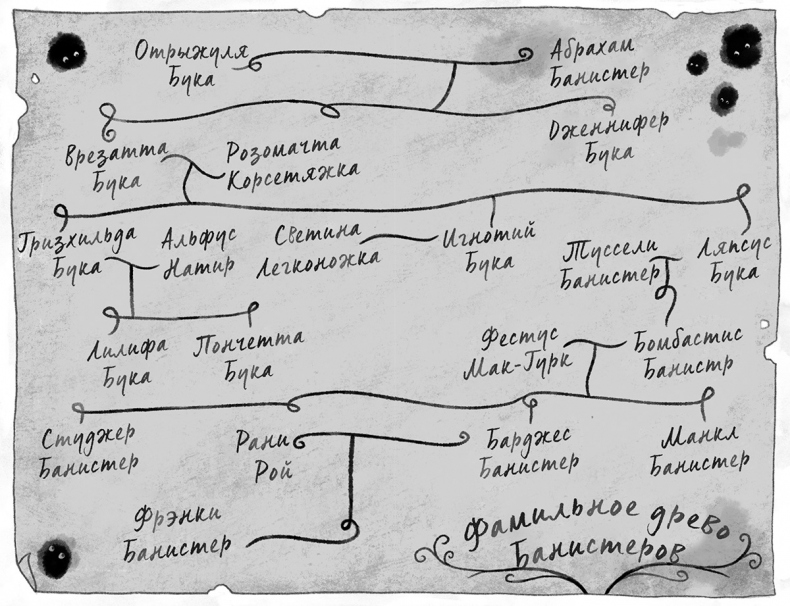 Отрыжуля
Бука
Абрахам
Банистер
Врезатта
Бука
Розомачта
Корсетяжка
Дженнифер
Бука
Гризхильда
Бука
Альфус
Натир
Светина
Легконожка
Игнотий
Бука
Туссели
Банистер
Ляпсус
Бука
Лилифа
Бука
Пончетта
Бука
Фестус
Мак-Гурк
Бомбастис
Банистр
Студжер
Банистер
Рани
Рой
Барджес
Банистер
Манкл
Банистер
Фрэнки
Банистер
Фамильное древо
Банистеров